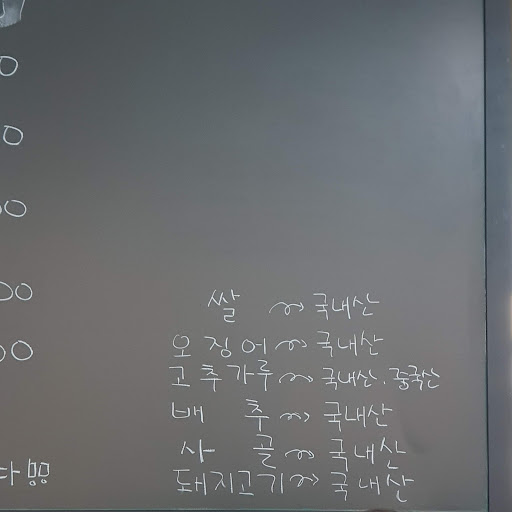 0
0
00
00
00
쌀 ~> 국내산
오징어 ~> 국내산
고추가루 ~> 국내산, 중국산
배 추 ~> 국내산
사 골 ~> 국내산
다!! 돼지고기 ~> 국내산